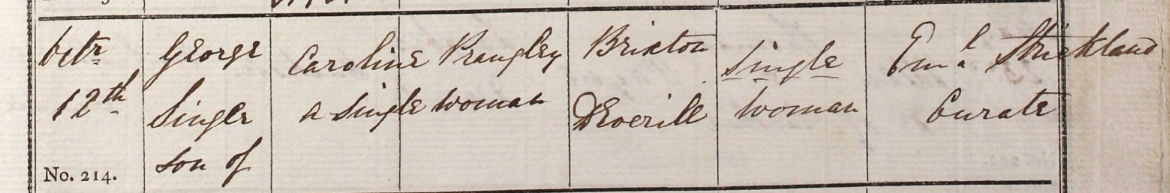 Octr
12th
No. 214.
George
Singer
son of
Caroline Prangley
a Single woman
Brixton
Deverill
Single
woman
Eml Strickland
Curate